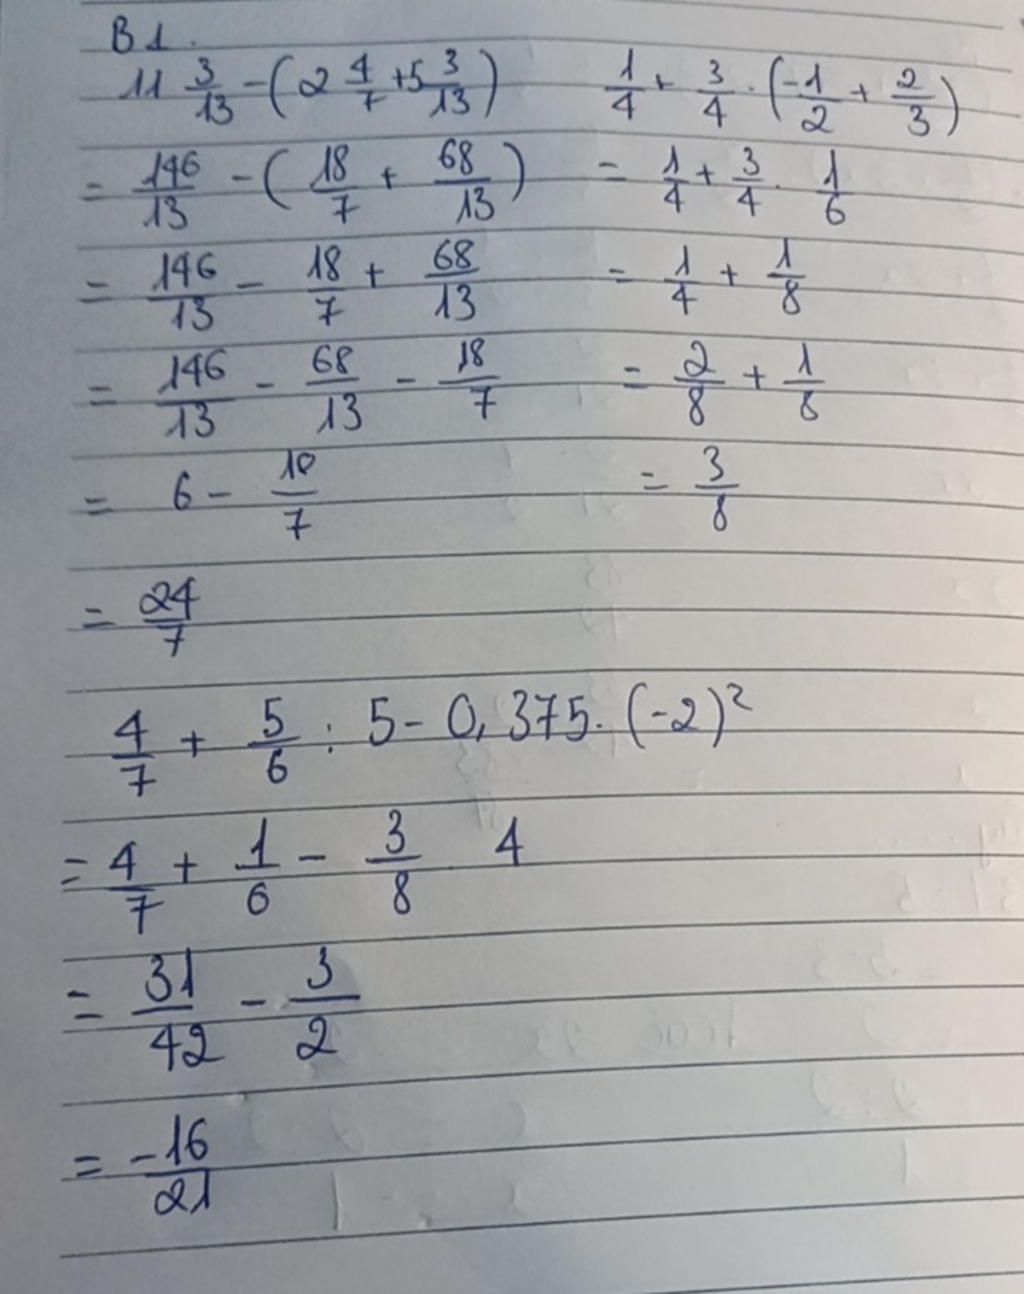 B1.
11 3/13 - (2 4/7 + 5 3/13)
= 146/13 - (18/7 + 68/13)
= 146/13 - 18/7 + 68/13
= 146/13 - 68/13 - 18/7
= 6 - 18/7
= 24/7
1/4 + 3/4 . (-1/2 + 2/3)
= 1/4 + 3/4 . 1/6
= 1/4 + 1/8
= 2/8 + 1/8
= 3/8
4/7 + 5/6 : 5 - 0,375. (-2)²
= 4/7 + 1/6 - 3/8 4
= 31/42 - 3/2
= -16/21